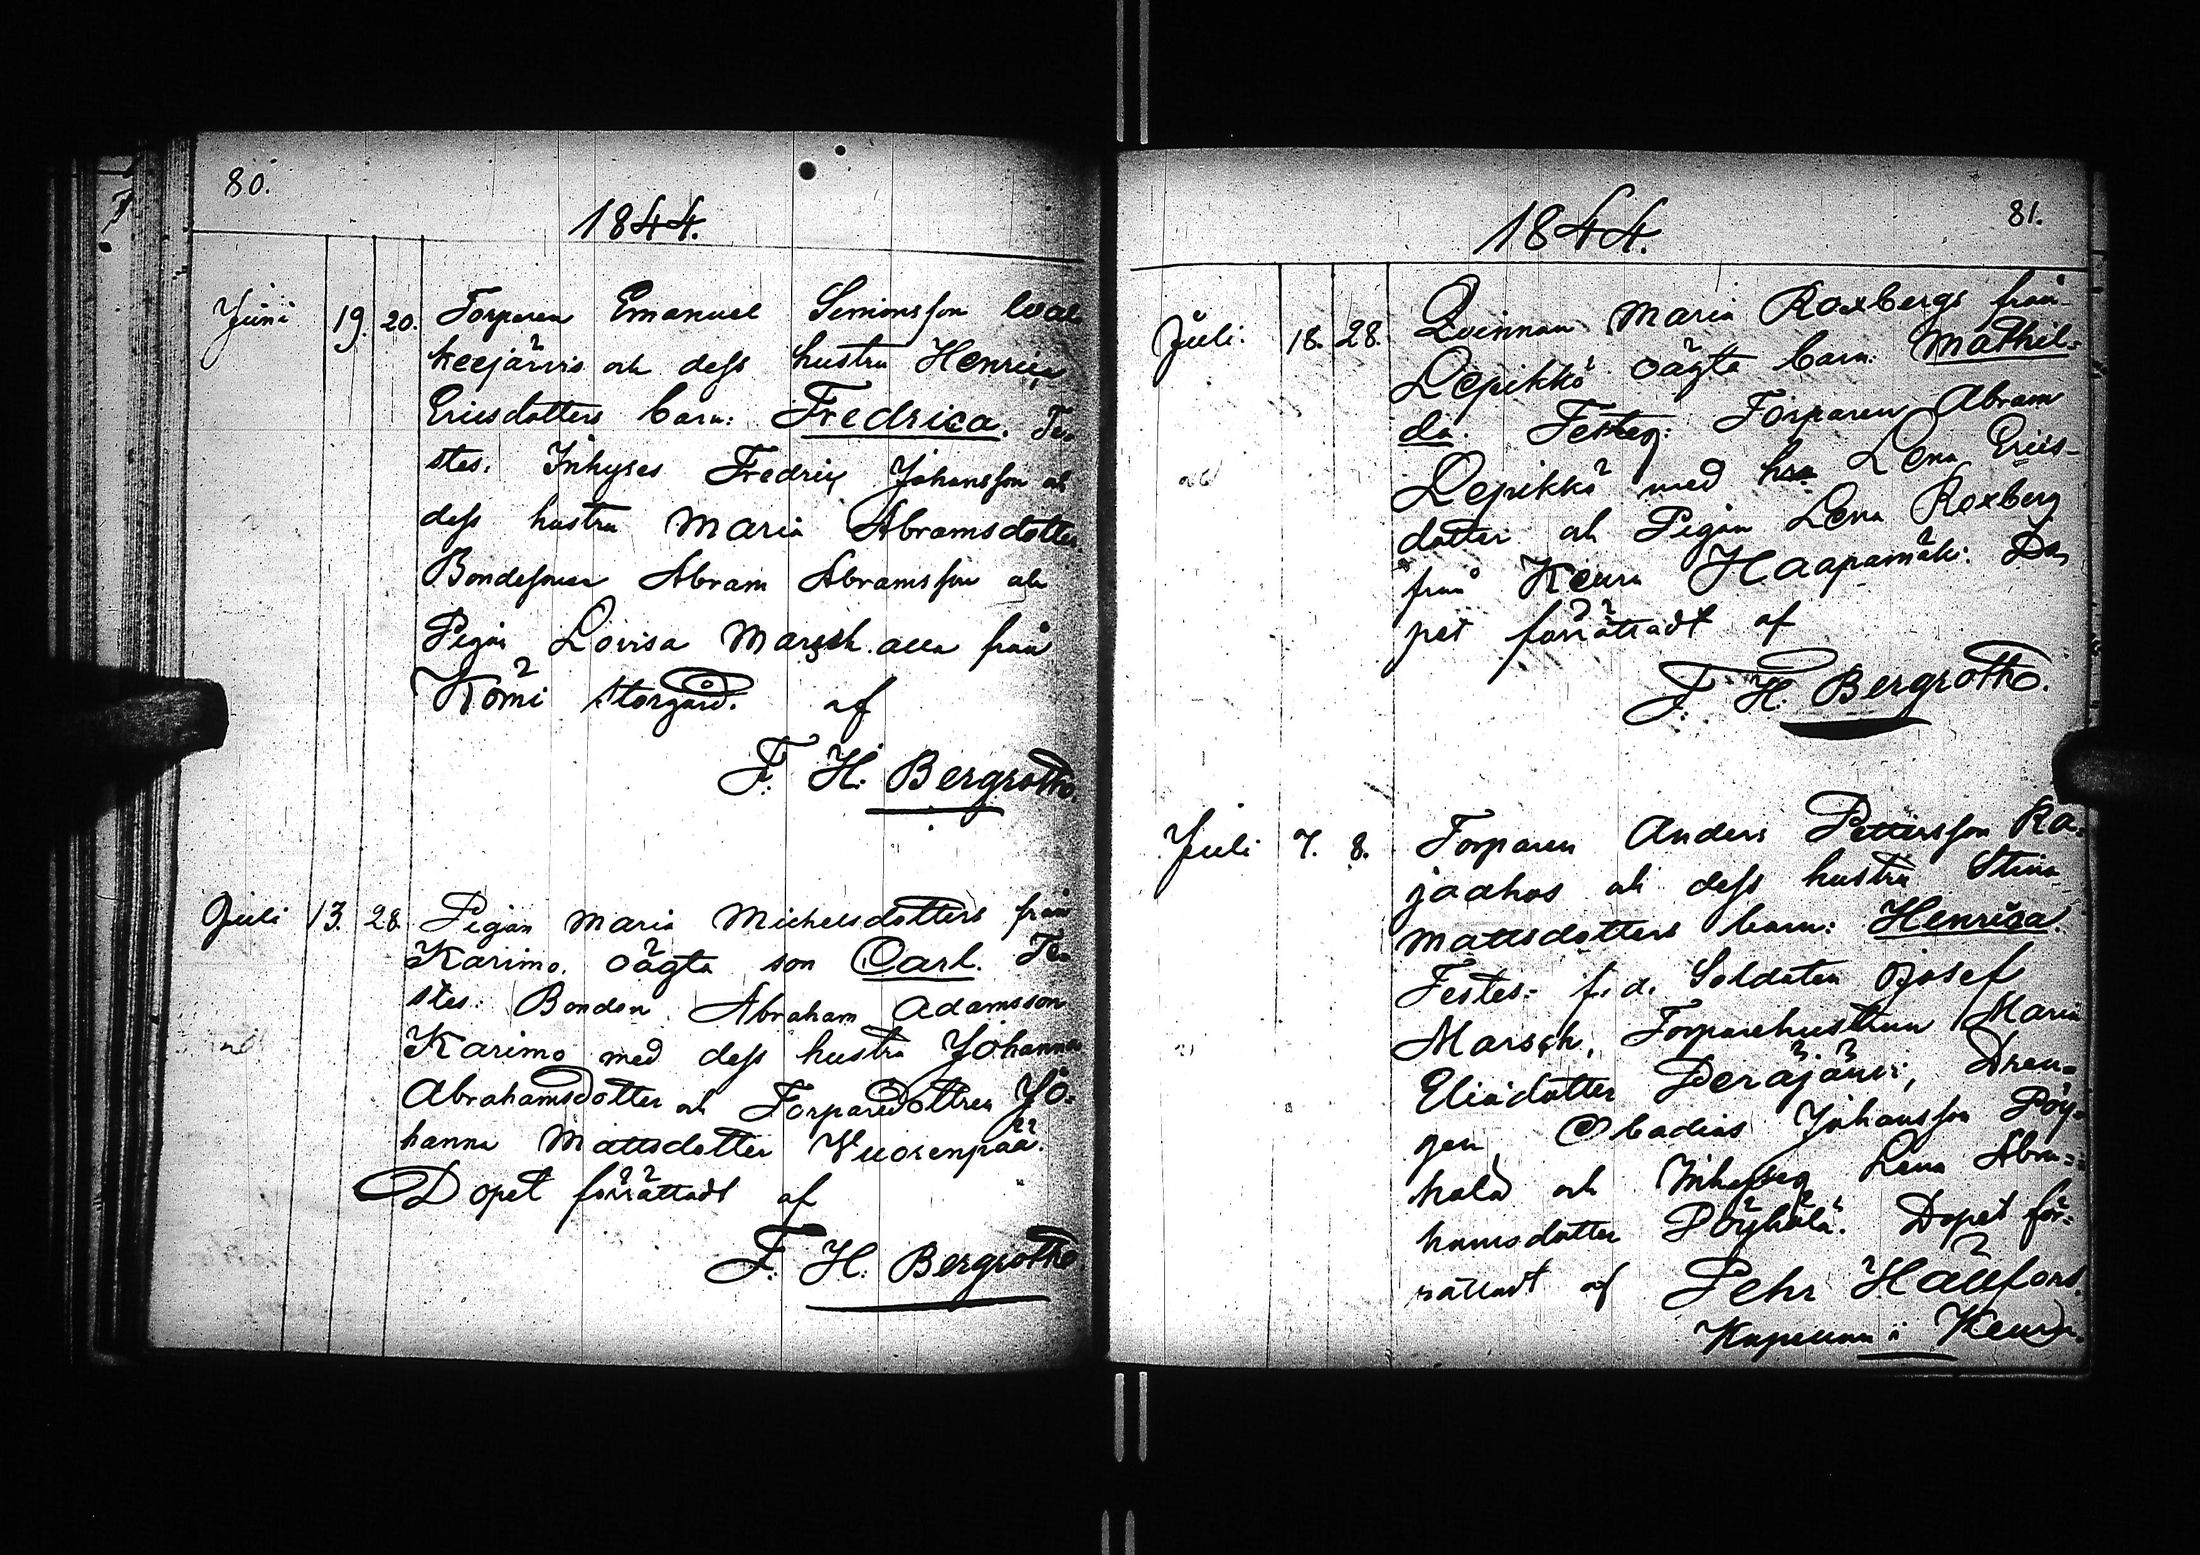 80.
1844.
Juni 19. 20. Torparen Emanuel Simonsson Wal-
keejärvis och dess hustru Henrica
Ericsdotters barn: Fredrica. Te-
stes. Inhyses Fredric Johansson och
dess hustru Maria Abramsdotter
Bondesonen Abram Abramsson och
Pigan Lovisa Marsch alla från
Kömi storgård. af
F. H. Bergroth.
Juli 13. 28. Pigan Maria Michelsdotters från
Karimo. oägta son Carl. Te-
stes: Bonden Abraham Adamsson
Karimo med dess hustru Johanna
Abrahamsdotter och Torparedottren Jo-
hanna Mattsdotter Vuorenpää.
Dopet förrättadt af
F. H. Bergroth
81.
1844.
Juli. 18. 28. Qvinnan Maria Roxbergs från
Lepikkö oägta barn: Mathil-
da. Testes: Torparen Abram
Lepikkö med hru Lena Erics-
dotter och Pigan Lena Roxberg
från Keuru Haapamäki. Do-
pet förrättadt af
F. H. Bergroth.
Juli 7. 8. Torparen Anders Pettersson Ra-
jaahos och dess hustru Stina
Mattsdotters barn: Henrica.
Testes: f. d. Soldaten Josef
Marsch, Torparehustrun Maria
Eliædotter Peräjänis, Dren-
gen, Obadias Johansson Pöy-
hälä och Inhyses Lena Abra-
hamsdotter Pöyhälä. Dopet för-
rättadt af Pehr Hällfors.
Kapellan i Keuru.